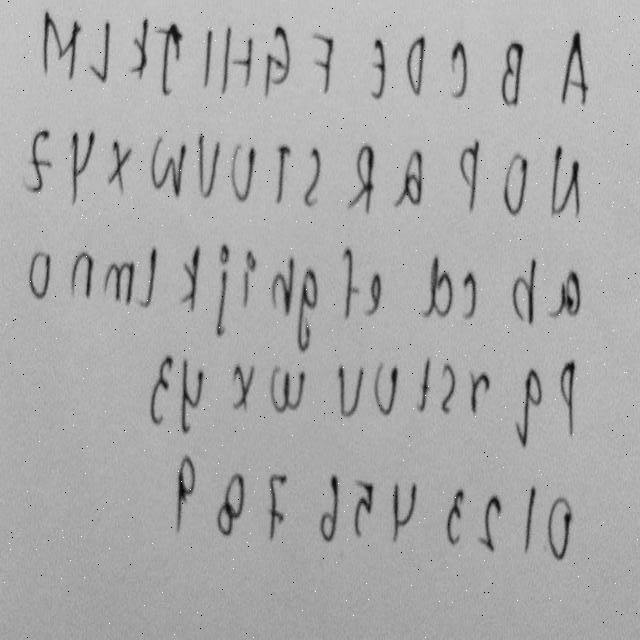 A B C D E F G H I J K L M
N O P Q R S T U V W X Y Z
a b c d e f g h i j k l m n o
p q r s t u v w x y z
0 1 2 3 4 5 6 7 8 9